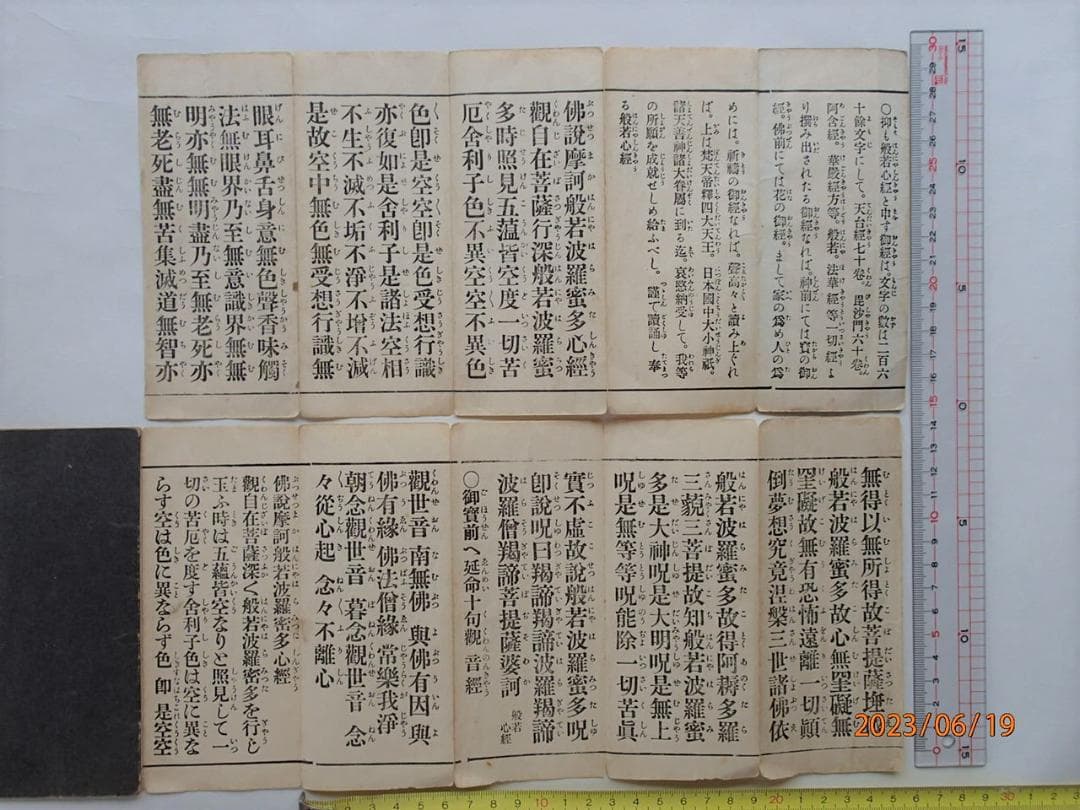 〇抑も般若心經と申す御經は。文字の數は二百六
十餘文字にして、天台經七十卷。毘沙門六十卷。
阿含經。華嚴經方等。般若。法華經等一切經よ
り撰み出されたる御經なれば。神前にては寳の御
經。佛前にては花の御經。まして家の爲め人の爲
めには。祈禱の御經なれば。聲高々と讀み上ぐれ
ば。上は梵天帝釋四大天王。日本國中大小神祇。
諸天善神諸大眷屬に到る迄。哀愍納受して。我等
の所願を成就せしめ給ふべし。謹で讀誦し奉
る般若心經
佛說摩訶般若波羅蜜多心經
觀自在菩薩行深般若波羅蜜
多時照見五蘊皆空度一切苦
厄舍利子色不異空空不異色
色卽是空空卽是色受想行識
亦復如是舍利子是諸法空相
不生不滅不垢不淨不增不減
是故空中無色無受想行識無
眼耳鼻舌身意無色聲香味觸
法無眼界乃至無意識界無無
明亦無無明盡乃至無老死亦
無老死盡無苦集滅道無智亦
無得以無所得故菩提薩埵
般若波羅蜜多故心無罣礙無
罣礙故無有恐怖遠離一切顚
倒夢想究竟涅槃三世諸佛依
般若波羅蜜多故得阿耨多羅
三藐三菩提故知般若波羅蜜
多是大神呪是大明呪是無上
呪是無等等呪能除一切苦眞
實不虛故說般若波羅蜜多呪
卽說呪曰羯諦羯諦波羅羯諦
波羅僧羯諦菩提薩婆訶 般若心經
〇御寳前へ延命十句觀音經
觀世音 南無佛 與佛有因與
佛有緣 佛法僧緣 常樂我淨
朝念觀世音 暮念觀世音 念
々從心起 念々不離心
佛說摩訶般若波羅密多心經
觀自在菩薩深く般若波羅密多を行じ
玉ふ時は五蘊皆空なりと照見して一
切の苦厄を度す舍利子色は空に異な
らす空は色に異ならず色卽是空空
2023/06/19